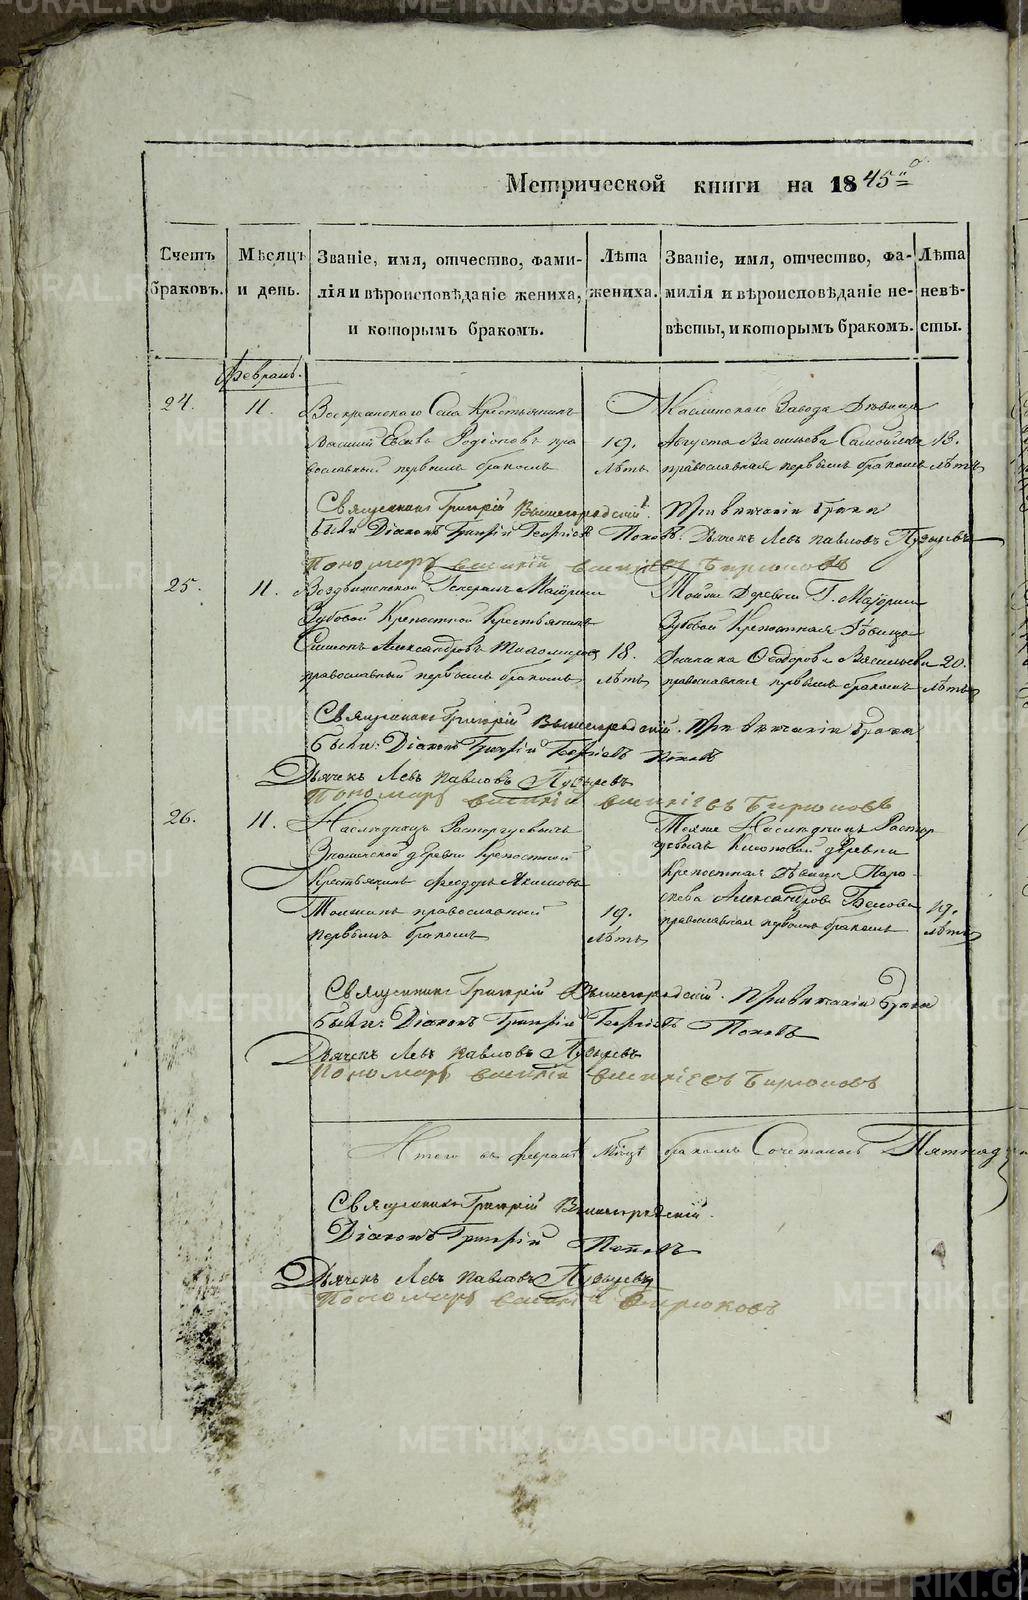 METRIKI.GASO-URAL.RU
Метрической книги на 1845го
Счетъ браковъ.
Мѣсяцъ и день.
Званіе, имя, отчество, фами-
лія и вѣроисповѣданіе жениха,
и которымъ бракомъ.
Лѣта жениха.
Званіе, имя, отчество, фа-
милія и вѣроисповѣданіе не-
вѣсты, и которымъ бракомъ.
Лѣта невѣ-
сты.
Февраль.
24. 11.
Воскресенскаго Села Крестьянинъ
Василий Родіоновъ пра
вославный первымъ бракомъ
19.
лѣтъ
Каслинскаго Завода Дѣвица
Августа Васильева Самойлова
православная первымъ бракомъ
18.
лѣтъ
Священникъ Григрій Вышегородскій. При вѣнчаніи брака
были Діаконъ Григрій Георгіевъ Поповъ. Дьячекъ Левъ Павловъ Пузыревъ
Пономарь василій василіевъ Бирюковъ
25. 11.
Воздвиженской Генералъ Маіорши
Зубовой Крепостной Крестьянинъ
Симонъ Александровъ
православный первымъ бракомъ
18.
лѣтъ
Тойже Деревни Г. Маіорши
Зубовой Крепостная Дѣвица
Феодорова Васильева
православная первымъ бракомъ
20.
лѣтъ
Священникъ Григрій Вышегородскій. При вѣнчаніи брака
были: Діаконъ Григрій Георгіевъ Поповъ
Дьячекъ Левъ Павловъ Пузыревъ
Пономарь василій василіевъ Бирюковъ
26. 11.
Наслѣдницъ Расторгуевыхъ
деревни крепостной
Крестьянинъ Феодоръ Акимовъ
православный
первымъ бракомъ
19.
лѣтъ
Тѣхже Наслѣдницъ Растор-
гуевыхъ деревни
крепостная дѣвица Пара-
скева Александрова Белова
православная первымъ бракомъ
19.
лѣтъ
Священникъ Григрій Вышегородскій. При вѣнчаніи брака
были: Діаконъ Григрій Георгіевъ Поповъ
Дьячекъ Левъ Павловъ Пузыревъ
Пономарь василій василіевъ Бирюковъ
Итого въ февралѣ мѣсцѣ бракомъ Сочеталось Пятнад
Священникъ Григрій Вышегородскій.
Діаконъ Григрій Поповъ
Дьячекъ Левъ Павловъ Пузыревъ
Пономарь василій Бирюковъ